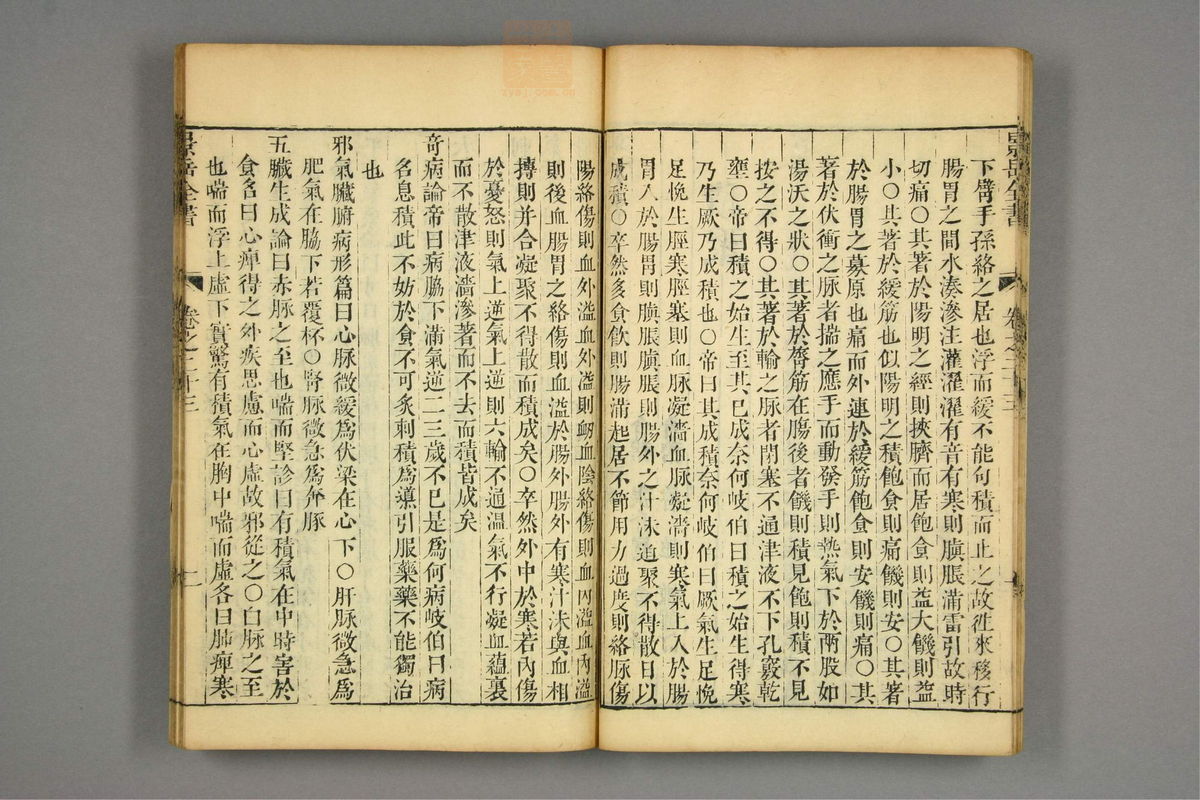 下臂手孫絡之居也浮而緩不能句積而止之故徃來移行
腸胃之間水湊滲注灌濯濯有音有寒則䐜脹滿雷引故時
切痛〇其著於陽明之經則挾臍而居飽食則益大饑則益
小〇其著於緩筋也似陽明之積飽食則痛饑則安〇其著
於腸胃之募原也痛而外連於緩筋飽食則安饑則痛〇其
著於伏衝之脉者揣之應手而動發手則熱氣下於兩股如
湯沃之狀〇其著於膂筋在腸後者饑則積見飽則積不見
按之不得〇其著於輸之脉者閉塞不通津液不下孔竅乾
壅〇帝曰積之始生至其已成奈何岐伯曰積之始生得寒
乃生厥乃成積也〇帝曰其成積奈何岐伯曰厥氣生足悗
足悗生脛寒脛寒則血脉凝濇血脉凝濇則寒氣上入於腸
胃入於腸胃則䐜脹䐜脹則腸外之汁沫迫聚不得散日以
成積〇卒然多食飲則腸滿起居不節用力過度則絡脉傷
陽絡傷則血外溢血外溢則衂血陰絡傷則血內溢血內溢
則後血腸胃之絡傷則血溢於腸外腸外有寒汁沫與血相
摶則并合凝聚不得散而積成矣〇卒然外中於寒若內傷
於憂怒則氣上逆氣上逆則六輸不通温氣不行凝血蘊裏
而不散津液濇滲著而不去而積皆成矣
奇病論帝曰病脇下滿氣逆二三歲不已是爲何病岐伯曰病
名息積此不妨於食不可炙刺積爲導引服藥藥不能獨治
也
邪氣臟腑病形篇曰心脉微緩爲伏梁在心下〇肝脉微急爲
肥氣在脇下若覆杯〇腎脉微急爲奔豚
五臟生成論曰赤脉之至也喘而堅診曰有積氣在中時害於
食名曰心痺得之外疾思慮而心虛故邪從之〇白脉之至
也喘而浮上虛下實驚有積氣在胸中喘而虛名曰肺痺寒
景岳全書
卷之二十三